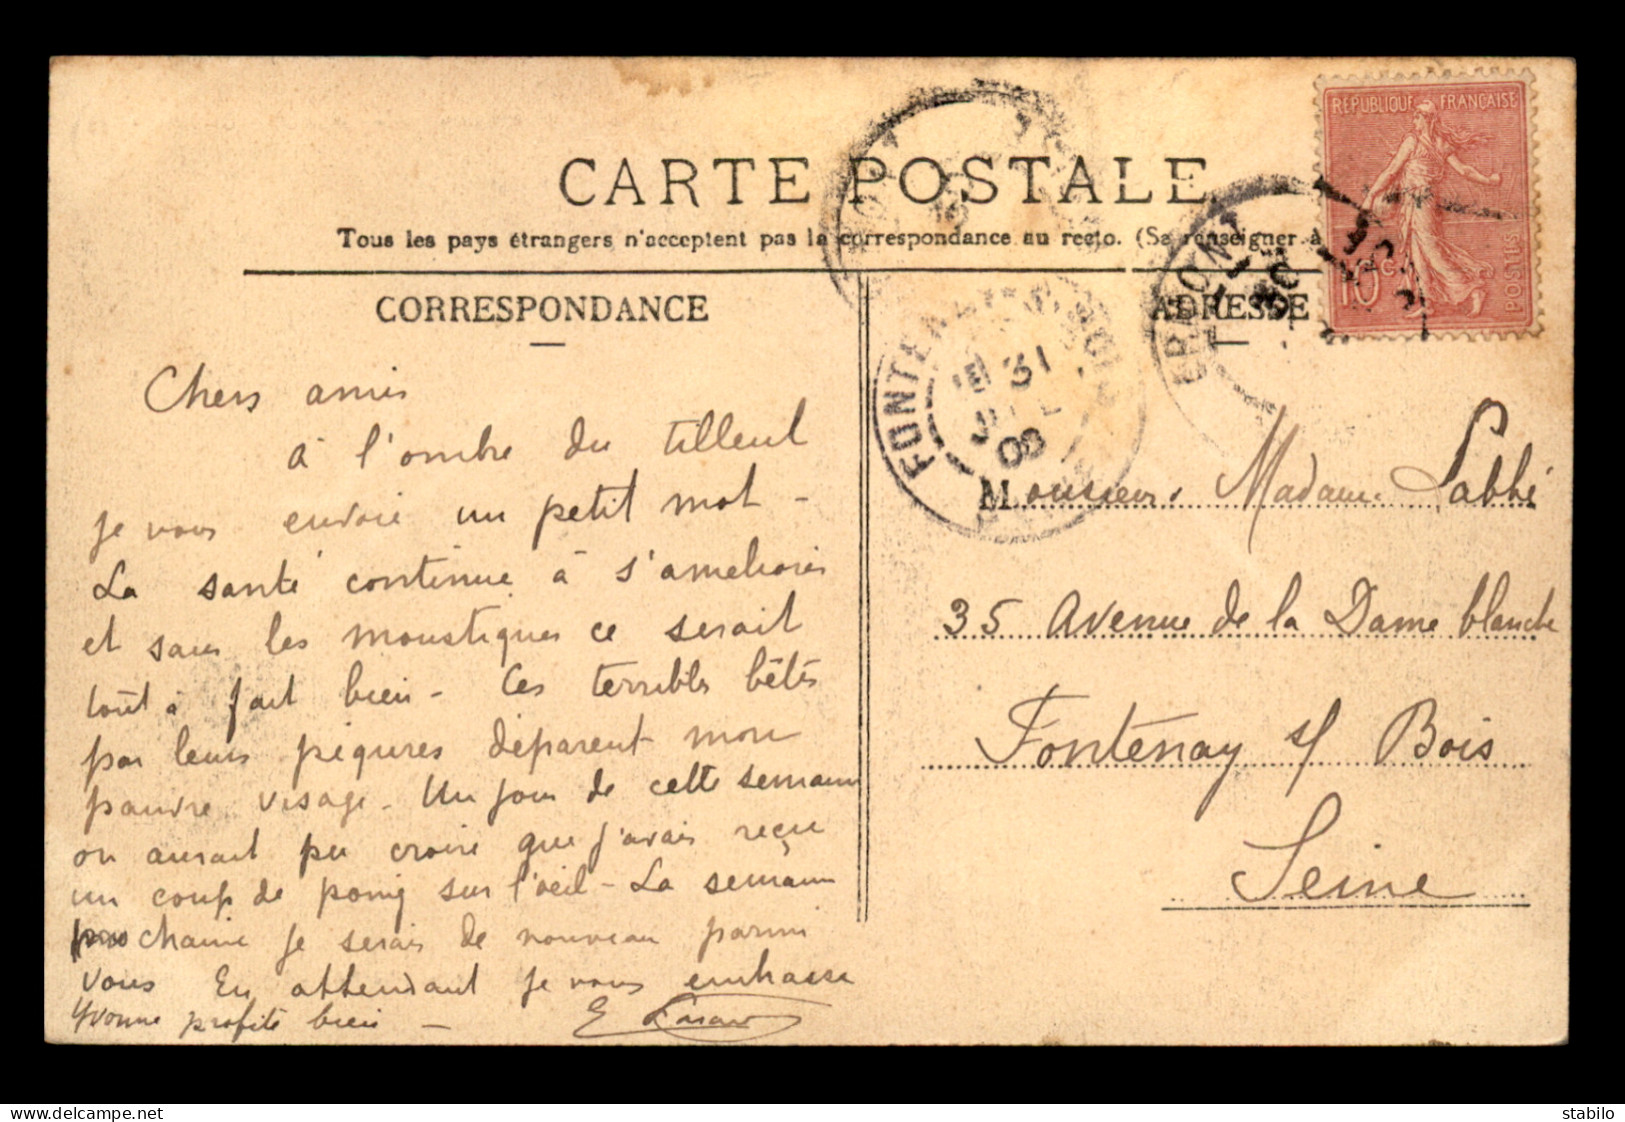 CARTE POSTALE
Tous les pays étrangers n'acceptent pas la correspondance au recto. (Se renseigner à
CORRESPONDANCE
ADRESSE
RÉPUBLIQUE FRANÇAISE
10c
POSTES
FONTENAY
31
08
Chers amis
à l'ombre du tilleul
je vous envoie un petit mot -
La santé continue à s'ameliorer
et sans les moustiques ce serait
tout à fait bien - Ces terribles bêtes
par leurs piqures déparent mon
pauvre visage - Un jour de cette semaine
on aurait pu croire que j'avais reçu
un coup de poing sur l'oeil - La semaine
prochaine je serais de nouveau parmi
vous En attendant je vous embrasse
Yvonne profite bien - E
Monsieur Madame Labbé
35 Avenue de la Dame blanche
Fontenay s/ Bois
Seine
Delcampe.net
stabilo